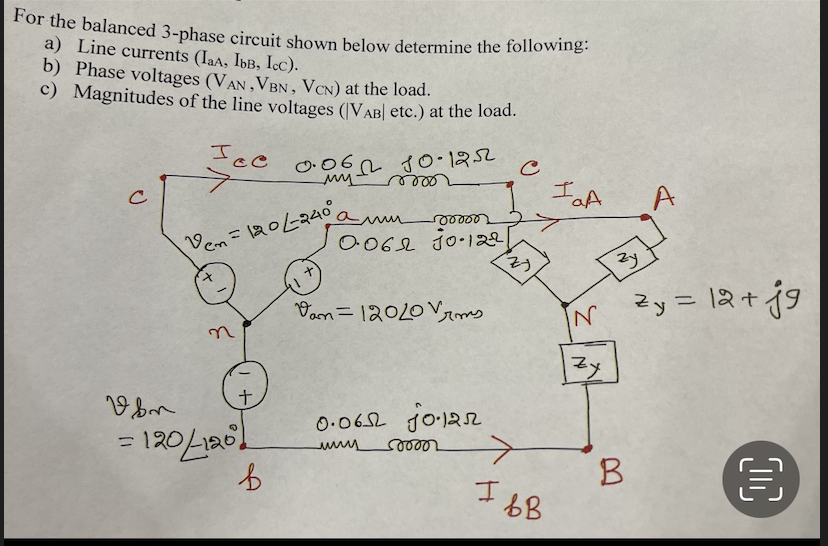 For the balanced 3-phase circuit shown below determine the following:
a) Line currents (IaA, IbB, IcC).
b) Phase voltages (VAN ,VBN, VCN) at the load.
c) Magnitudes of the line voltages (|VAB| etc.) at the load.
Icc 0.06Ω j0.12Ω
c C
IaA A
Vcn = 120∠-240° a
0.06Ω j0.12Ω
Zy Zy
+ - - +
Van = 120∠0 Vrms
Zy = 12 + j9
n N
Zy
- +
Vbn
= 120∠-120°
0.06Ω j0.12Ω
b B
IbB